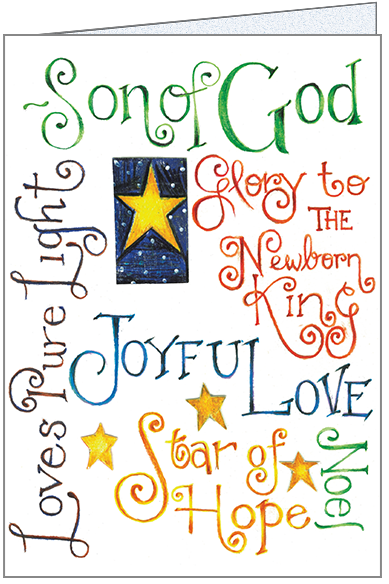 ~Son of God
Glory to
THE
Newborn
King
Loves Pure Light
JOYFUL
LOVE
Star of
Hope
Noel